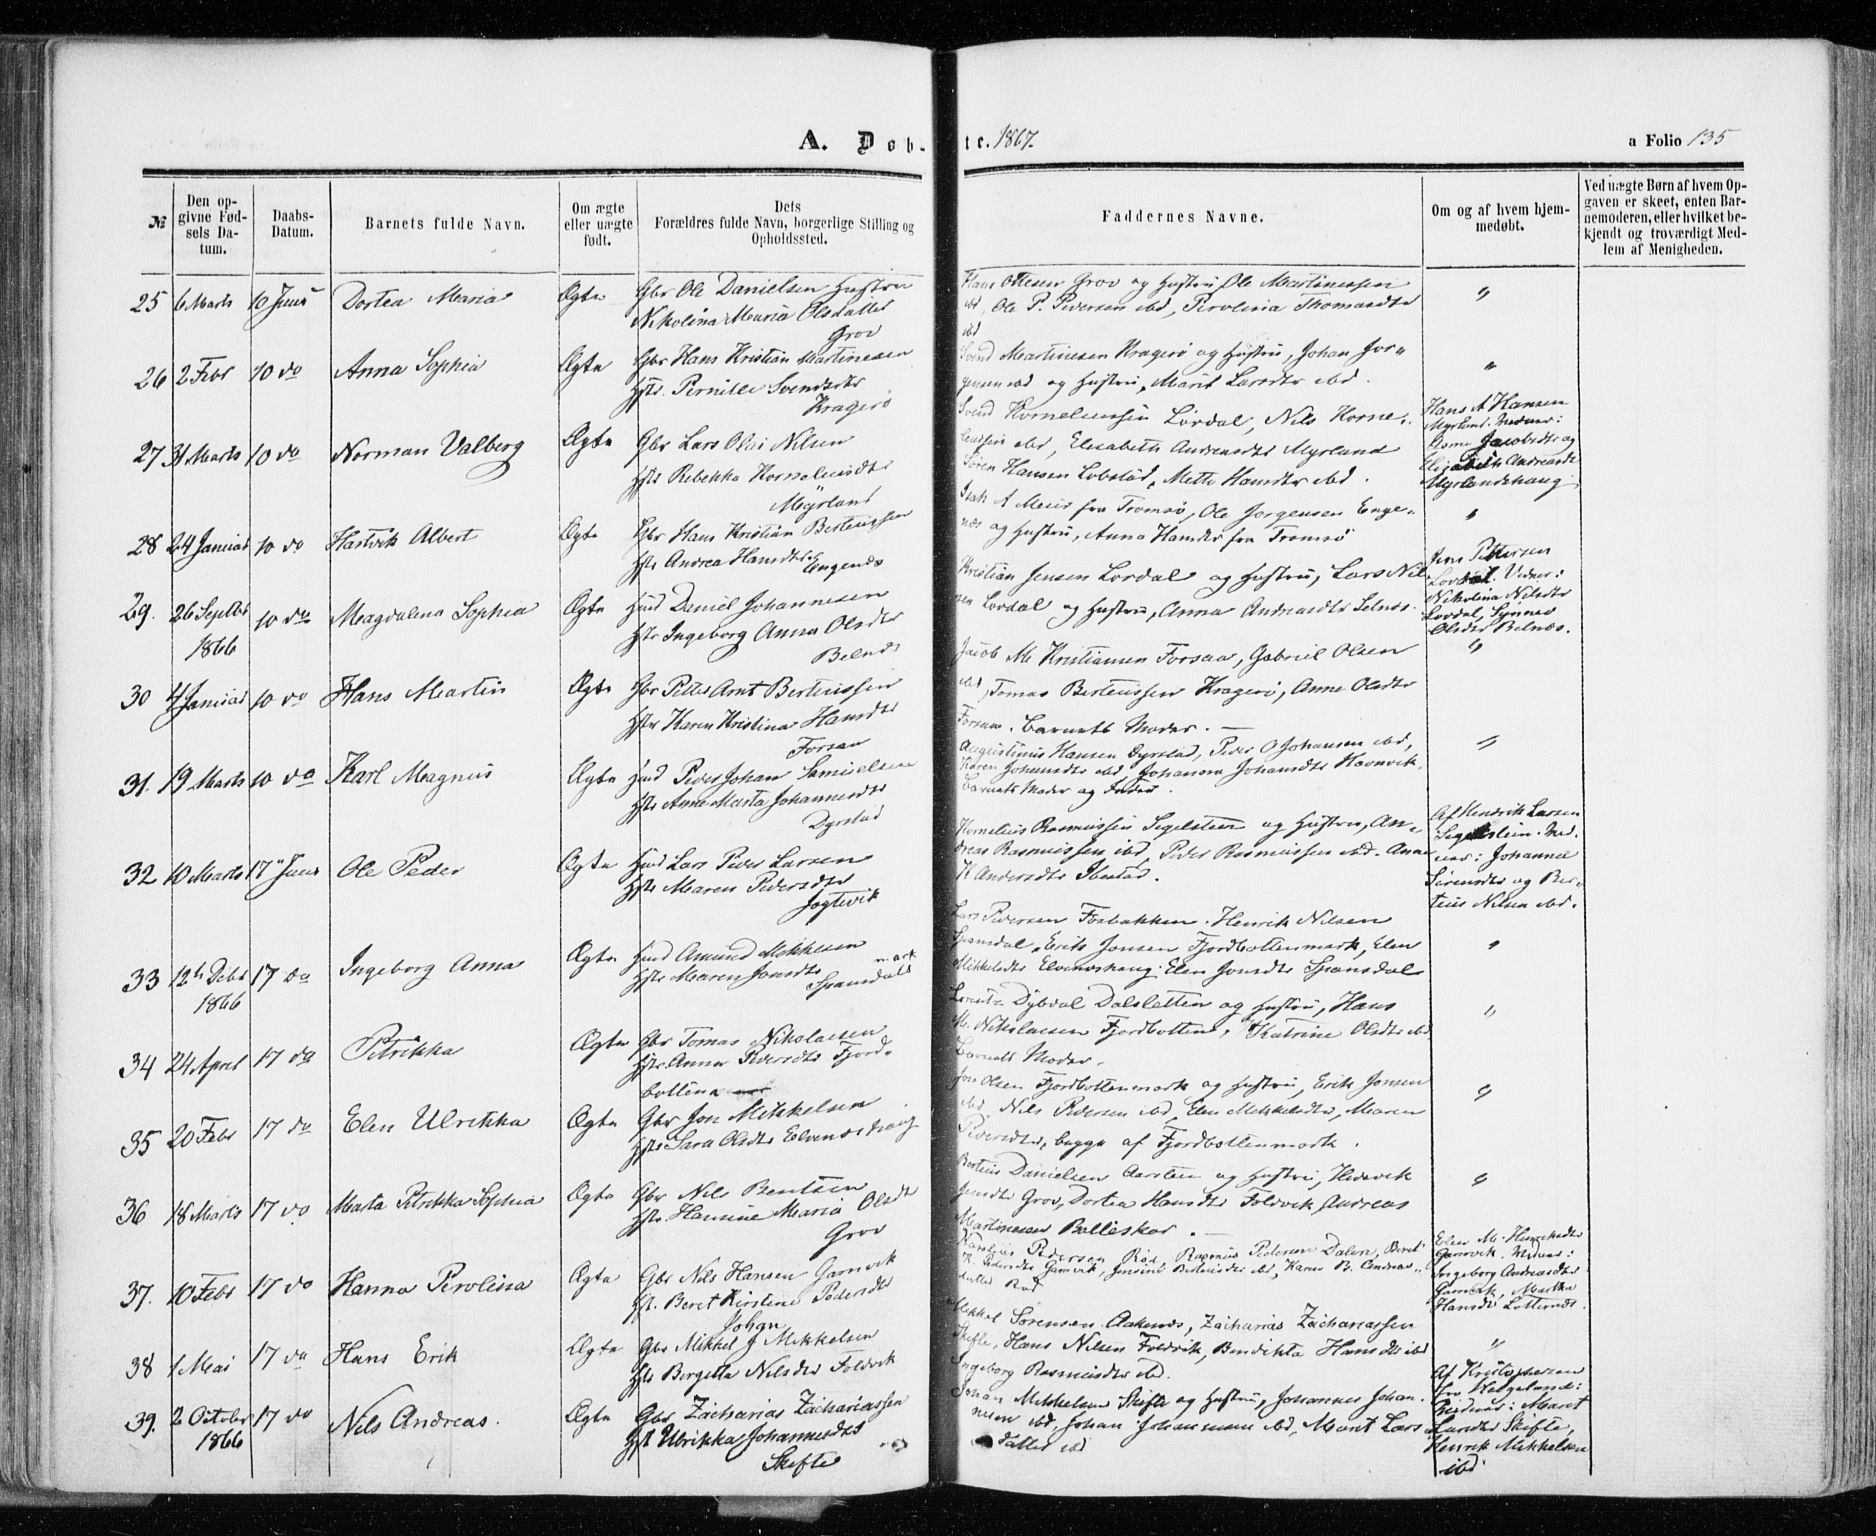 A. Døb-te. 1867.
a Folio 135
№
Den opgivne Fødsels Datum.
Daabs-Datum.
Barnets fulde Navn.
Om ægte eller uægte født.
Dets Forældres fulde Navn, borgerlige Stilling og Opholdssted.
Faddernes Navne.
Om og af hvem hjemmedøbt.
Ved uægte Børn af hvem Opgaven er skeet, enten Barnemoderen, eller hvilket bekjendt og troværdigt Medlem af Menigheden.
25 6 Marts 10 Juni Dortea Maria Ægte Gbr Ole Danielsen Hustru
Nikolina Maria Olsdatter
Grov
Hans Ottesen Grov og Hustru, Ole Martinussen
ibd, Ole P. Pedersen ibd, Perolina Thomasdtr
ibd
"
26 2 Febr 10 do Anna Sophia Ægte Gbr Hans Kristian Martinesen
Hstr. Pernille Svendsdtr
Kragerø
Svend Martinesen Kragerø og Hustru, Johan Jør-
gensen ibd og Hustru, Marit Larsdtr ibd.
"
27 31 Marts 10 do Norman Valberg Ægte Gbr Lars Olai Nilsen
Hstr Rebekka Korneliusdtr
Myrland
Svend Korneliussen Lovdal, Nils Korne-
liussen ibd, Elisabeth Andreasdtr Myrland
Søren Hansen Lobstad, Mette Hansdtr ibd.
Hans A Hansen
Myrland. Vidner:
Jacobsdtr og
Elizabeth Andreasdtr
Myrlandshaug.
28 24 Januar 10 do Hartvik Albert Ægte Gbr Hans Kristian Berteussen
Hstr Andrea Hansdtr Engenæs
Isak A Meier fra Tromsø, Ole Jørgensen Enge-
næs og Hustru, Anna Hansdtr fra Tromsø
"
29. 26 Septbr 1866 10 do Magdalena Sophia Ægte Hmd Daniel Johannesen
Hstr Ingeborg Anna Olsdtr
Belnæs
Kristian Jensen Lovdal og Hustru, Lars Nil-
sen Lovdal og Hustru, Anna Andreasdtr Selnæs.
Jens Pettersen
Lovdal. Vidner:
Nikolina Nilsdtr
Lovdal, Synnev
Olsdtr Belnæs.
30 4 Januar 10 do Hans Martin Ægte Gbr Petter Arnt Berteussen
Hstr Karen Kristina Hansdtr
Forsaa
Jacob M. Kristiansen Forsaa, Gabriel Olsen
ibd, Tomas Berteussen Kragerø, Anne Olsdtr
Forsaa. Barnets Moder. —
"
31. 19 Marts 10 do Karl Magnus Ægte Hmd Peder Johan Samuelsen
Hstr Anne Marta Johannesdtr
Dyrstad
Augustinus Hansen Dyrstad, Peder O Johansen ibd,
Karen Johansdtr ibd, Johanna Johansdtr Havnvik.
Barnets Moder og Fader.
"
32 10 Marts 17 Juni Ole Peder Ægte Hmd Lars Peder Larsen
Hstr Maren Pedersdtr
Jogtevik
Kornelius Rasmussen Segelsteen og Hustru, An-
dreas Rasmussen ibd, Peder Rasmussen ibd. Anne
K Andersdtr Ibestad.
Af Hendrik Larsen
Segelstein. Vid-
ner: Johanna
Sørensdtr og Ber-
teus Nilsen ibd.
33 12te Debr 1866 17 do Ingeborg Anna Ægte Hmd Amund Mikkelsen
Hstr Maren Jonsdtr
Spansdalsmark
Lars Pedersen Fosbakken. Henrik Nilsen
Spansdal, Erik Jonsen Fjordbottenmark, Elen
Mikkelsdtr Elvenæshaug. Elen Jonsdtr Spansdal
"
34 24 April 17 do Petrikka Ægte Gbr Tomas Nikolaisen
Hstr Anna Pedersdtr Fjord-
botten
Lorentz Dybdal Dalsletten og Hustru, Hans
M. Nikolaisen Fjordbotten, Katrine Olsdtr ibd
Barnets Moder.
"
35 20 Febr 17 do Elen Ulrikka Ægte Gbr Jon Mikkelsen
Hstr Sara Olsdtr Elvenæshaug
Jon Olsen Fjordbottenmark og Hustru, Erik Jonsen
ibd. Nils Pedersen ibd, Elen Mikkelsdtr, Maren
Pedersdtr, begge af Fjordbottenmark.
"
36 18 Marts 17 do Marta Petrikka Sophia Ægte Gbr Nils Bentsen
Hstr Hanine Maria Olsdtr
Grov
Berteus Danielsen Aarsten og Hustru, Hedevik
Jensdtr Grov, Dortea Hansdtr Foldvik, Andreas
Martinesen Balleskar. —
"
37. 10 Febr 17 do Hanna Perolina Ægte Gbr Nils Hansen Gamvik
Hst. Beret Kirstine Pedersdtr
Karelius Pedersen Rød, Rasmus Pedersen Dalen, Beret
K. Pedersdtr Gamvik, Jensine Berteusdtr ibd, Karen B. Andreas-
datter Rød
Elen M. Henriksdtr
Gamvik. Vidner:
Ingeborg Andreasdtr
Gamvik, Martha
Hansdtr Lotternæs.
38 1 Mai 17 do Hans Erik Ægte Johan
Gbr Mikkel J Mikkelsen
Hstr Bergitta Nilsdtr Foldvik
Mikkel Sørensen Aaknæs, Zacharias Zachariassen
Skifte, Hans Nilsen Foldvik, Bendikta Hansdtr ibd
Ingeborg Rasmusdtr ibd.
"
39. 2 October 1866 17 do Nils Andreas. Ægte Gbr Zacharias Zachariassen
Hst Ulrikka Johannesdtr
Skifte
Johan Mikkelsen Skifte og Hustru, Johannes Johan-
nesen ibd, Johan Johannesen ibd, Marit Lars-
datter ibd
Af Kristophersen
fra Helgeland:
Vidner: Marit
Larsdtr Skifte,
Henrik Mikkelsen
ibd.